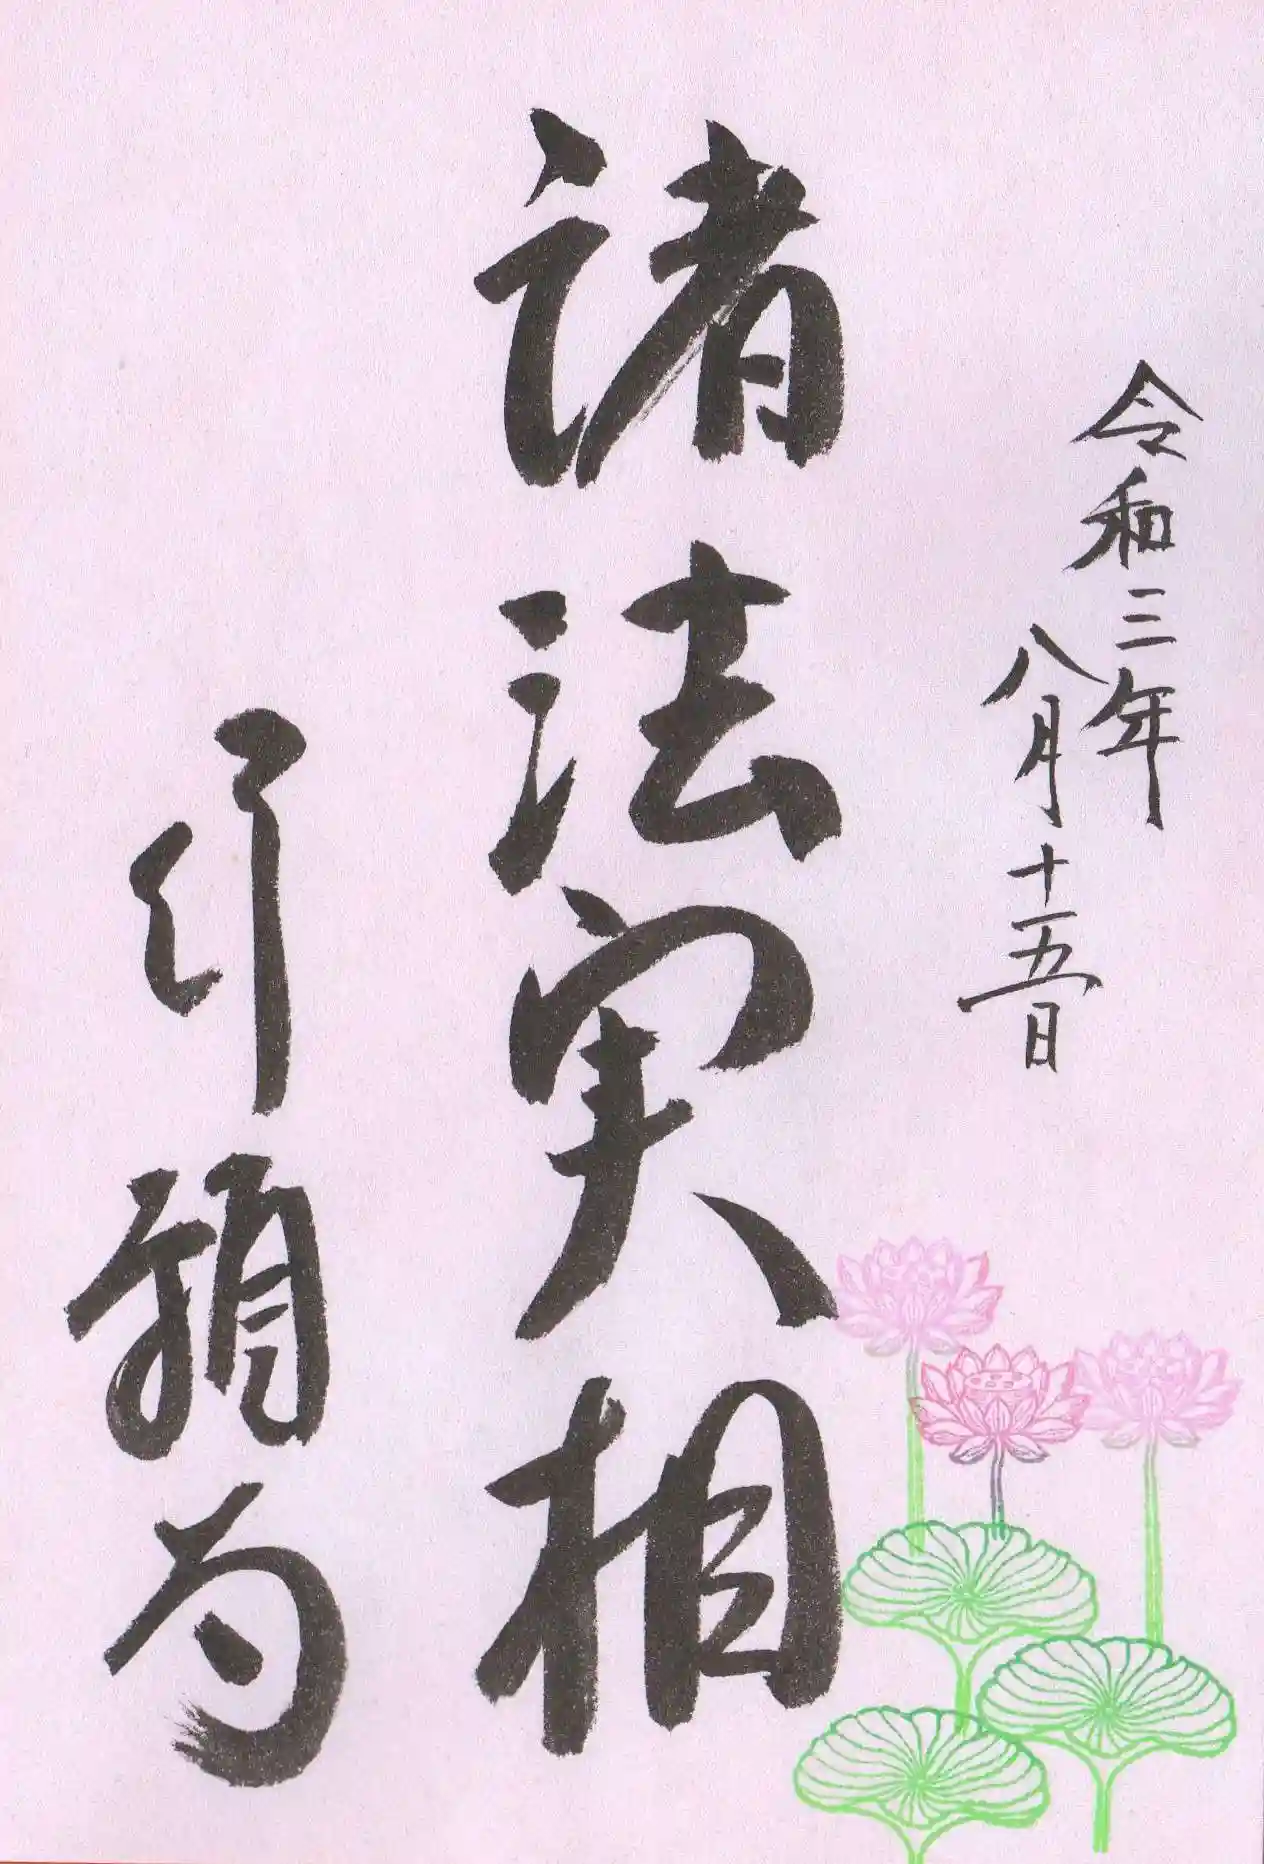 令和三年
八月十五日
諸法実相
引